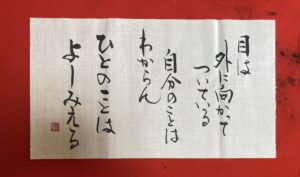 目は
外に向かって
ついている
自分のことは
わからん
ひとのことは
よーみえる